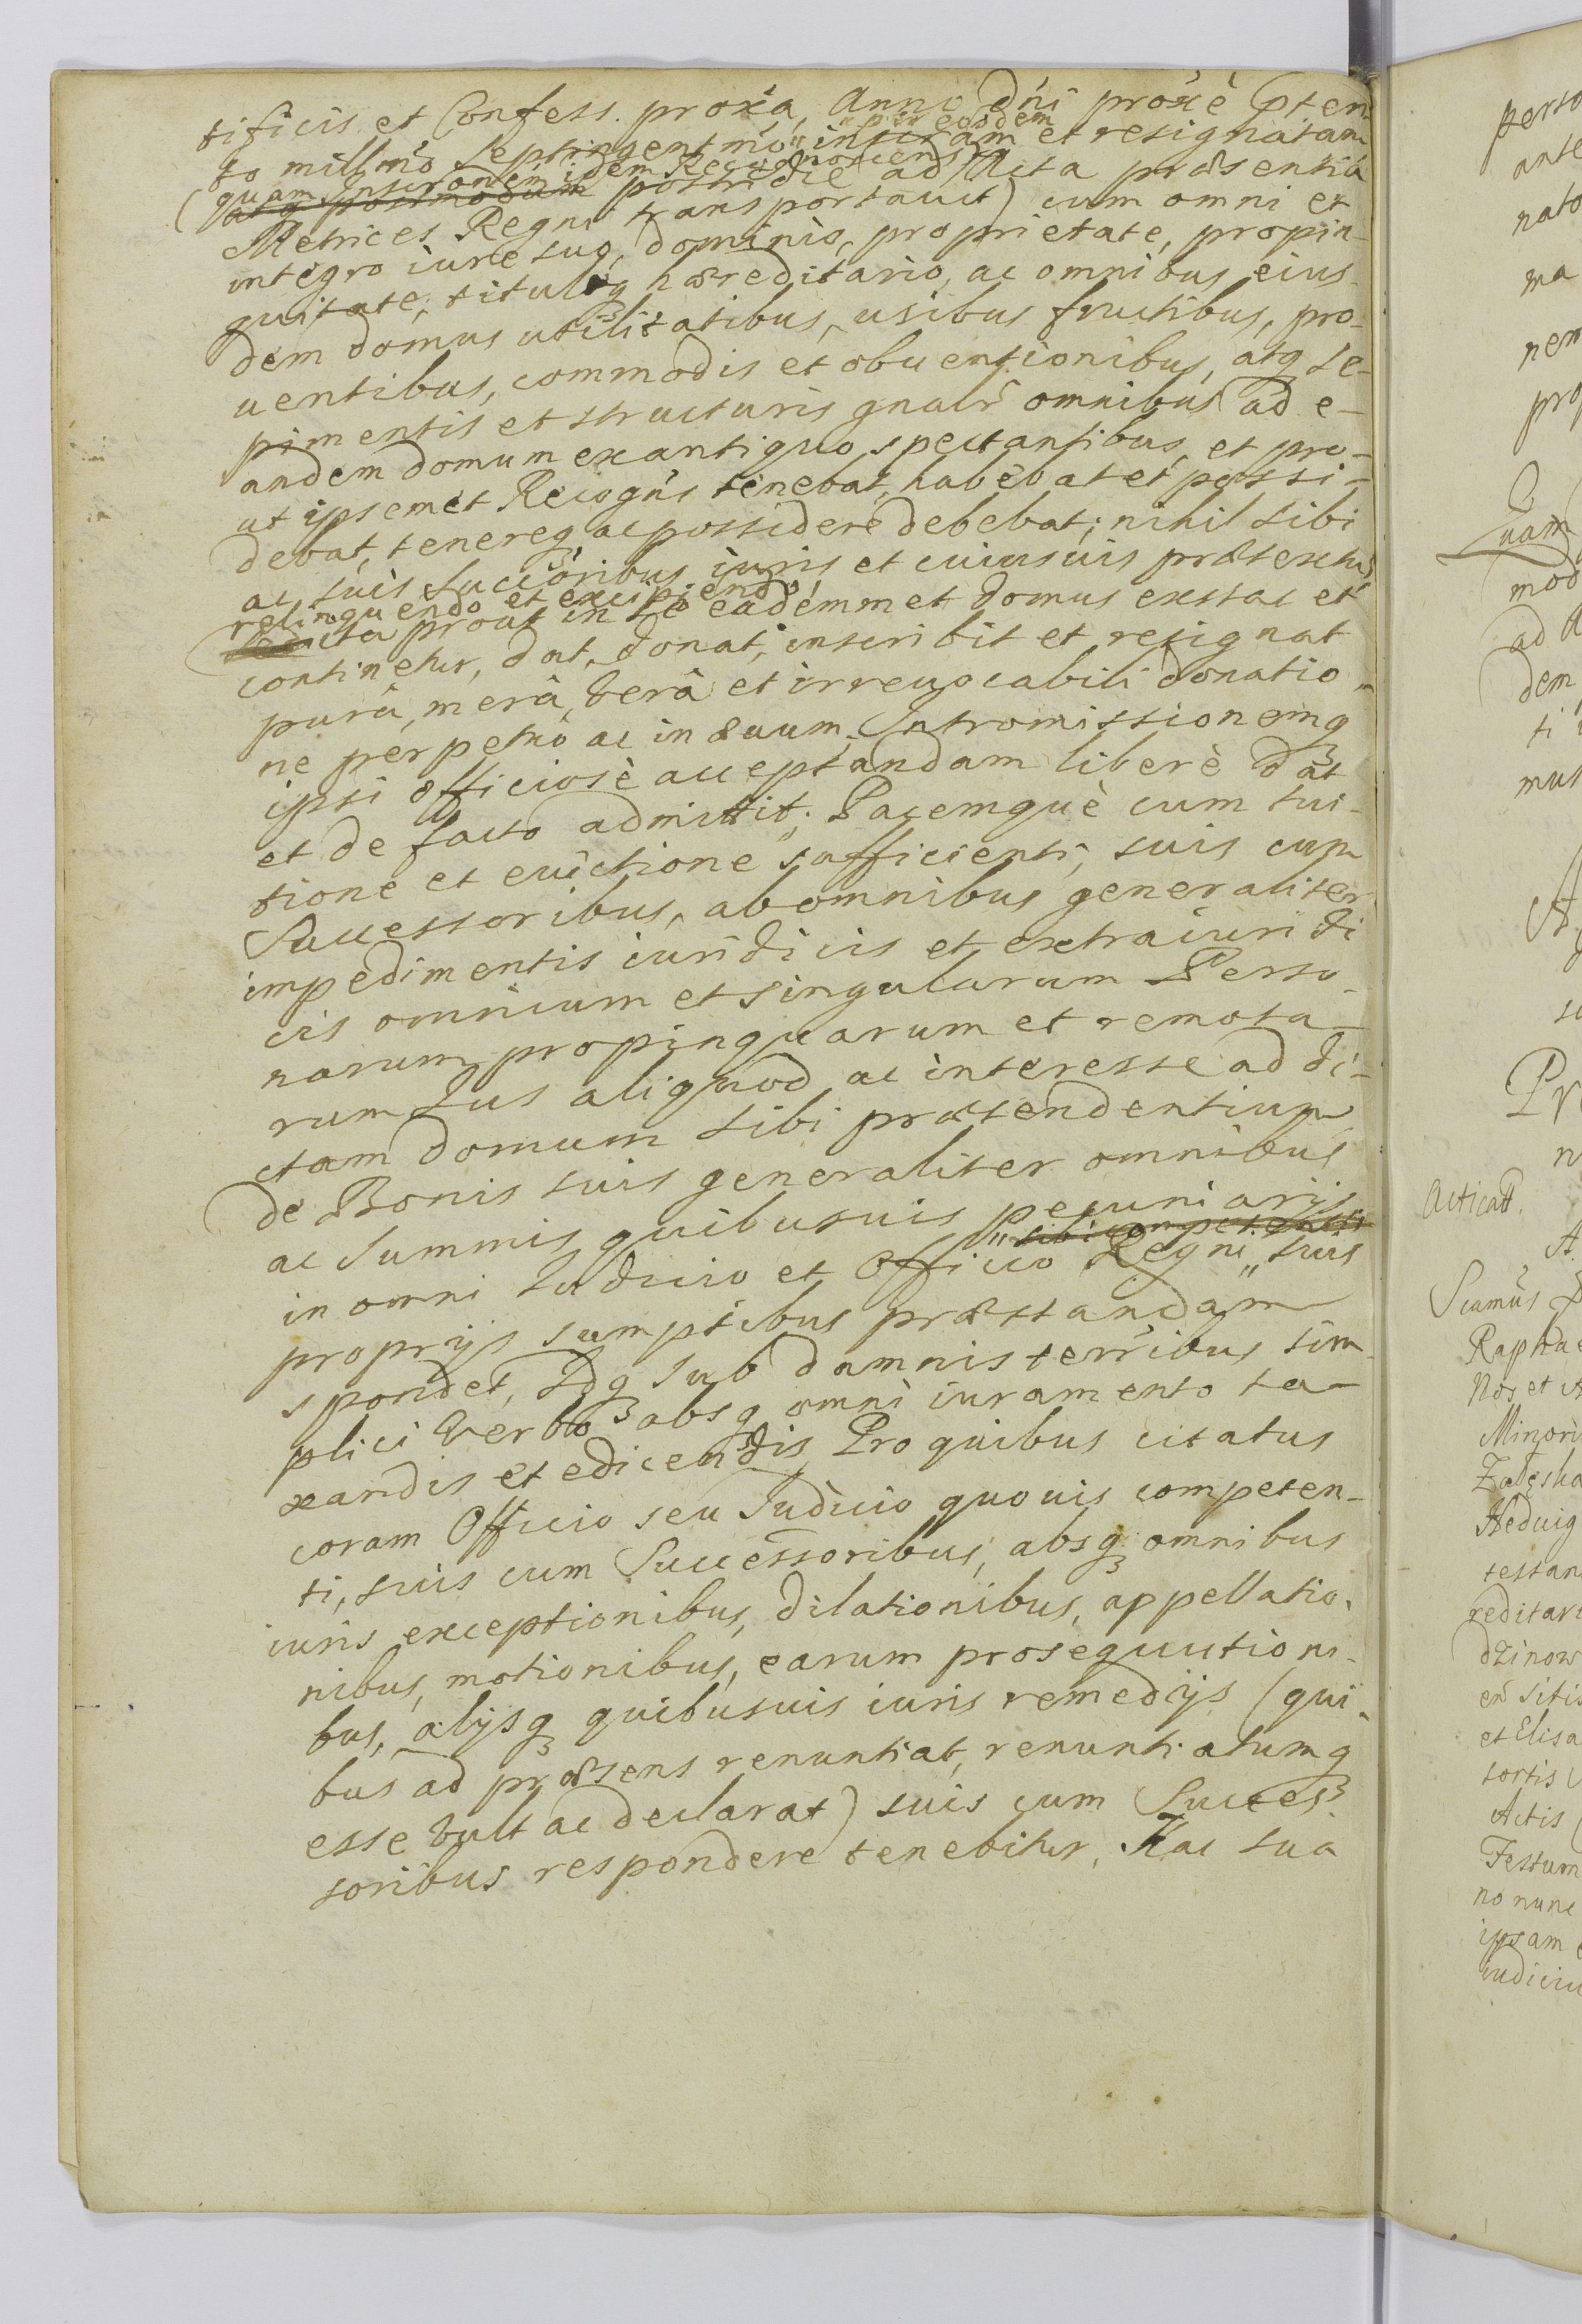 tificis et Confess. proxa, Anno dni proxè pten
to millmo Septingentmo "per eosdem" inscram et resignatam
(quam Inscronem idem Recognoscens
atq postmodum postridie ad Acta præsentia
Metrices Regni transportavit) cum omni et
integro iure suo, dominio, proprietate, propin-
quitate, tituloq hæreditario, ac omnibus eius-
dem domus utilitatibus, usibus fructibus, pro-
uentibus, commodis et obuentionibus, atq se-
pimentis et structuris gnalr omnibus ad e-
andem domum exantiquo spectantibus, et pro-
ut ipsemet Recogns tenebat, habebat et possi-
debat, tenereq ac possidere debebat; nihil sibi
ac suis Succoribus iuris et cuiusuis prætextus
relinquendo et excipiendo,
ita prout in se eademmet domus exstat et
continetur, dat, donat, inscribit et resignat
purâ, merâ, verâ et irreuocabili donatio-
ne perpetuò ac in æuum. Intromissionemq
ipsi officiosè acceptandam liberè dat
et de facto admittit; Pacemquè cum tui-
tione et euictione sufficienti, suis cum
Successoribus, ab omnibus generaliter
impedimentis iuridicis et extraiuridi
cis omnium et singularum Perso-
narum propinquarum et remota-
rum Ius aliquod ac interesse ad di-
ctam domum sibi prætendentium
de Bonis suis generaliter omnibus
ac Summis quibusuis pecuniarijs
sibi competenti
in omni Iudicio et Officio Regni, suis
proprijs sumptibus præstandam
spondet, Idq sub damnis terribus sim-
plici verbo absq omni iuramento ta-
xandis et edicendis, Pro quibus citatus
coram Officio seu Iudicio quouis competen-
ti, suis cum Successoribus, absq omnibus
iuris exceptionibus, dilationibus, appellatio-
nibus, motionibus, earum prosequutioni-
bus, alijsq quibusuis iuris remedijs (qui-
bus ad præsens renuntiat, renuntiatumq
esse vult ac declarat) suis cum Succes-
soribus respondere tenebitur, Hac sua
perso
ante
nato
ma
nem
pro
Quam
mod
ad A
dem
ti
mus
Pr
n
Acticatt.
Scamus
Raphae
Nos et A
Minori
Zalęska
Heduig
testan
reditari
dzinow
en Sitis
et Elisa
sortis
Actis
Festum
no nunc
ipsam
iudiciu